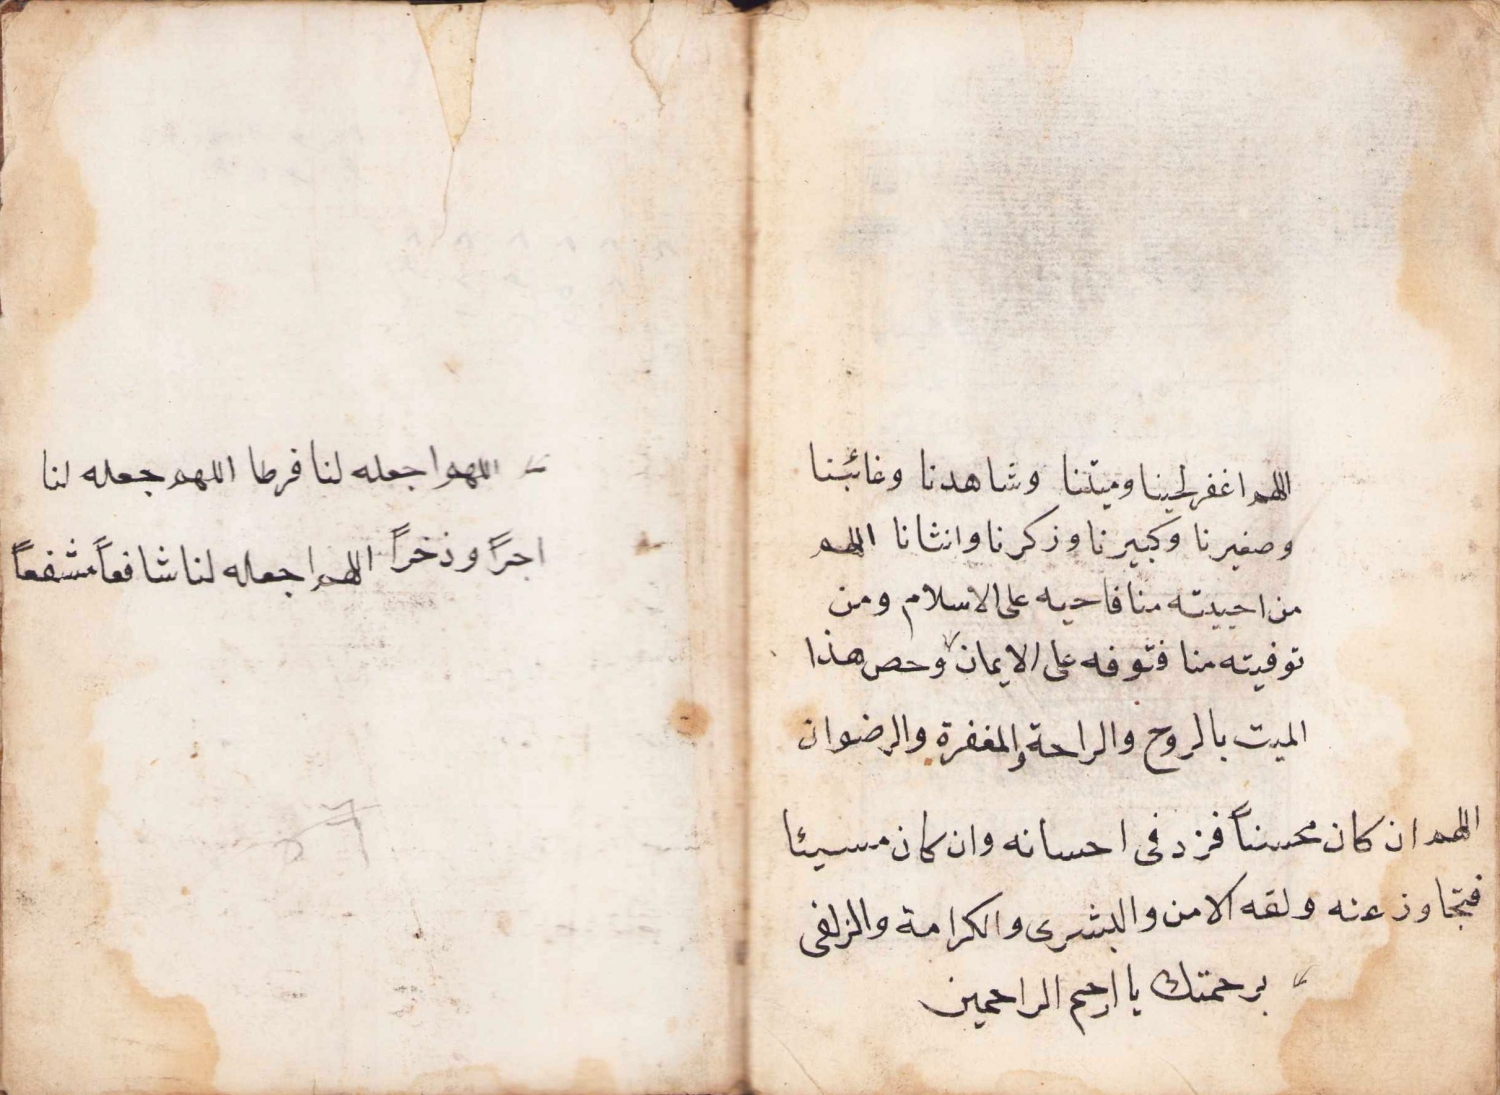 اللهم اغفر لحينا وميتنا وشاهدنا وغائبنا
وصغيرنا وكبيرنا وزكرنا وانثانا اللهم
من احييته منا فاحيه على الاسلام ومن
توفيته منا فتوفه على الايمان وحص هذا
الميت بالروح والراحة والمغفرة والرضوان
اللهم ان كان محسناً فزد فى احسانه وان كان مسيئا
فتجاوز عنه ولقه الامن والبشرى والكرامة والزلفى
برحمتك يا ارحم الراحمين
اللهم اجعله لنا فرطا اللهم جعله لنا
اجراً وذخراً اللهم اجعله لنا شافعاً مشفعاً